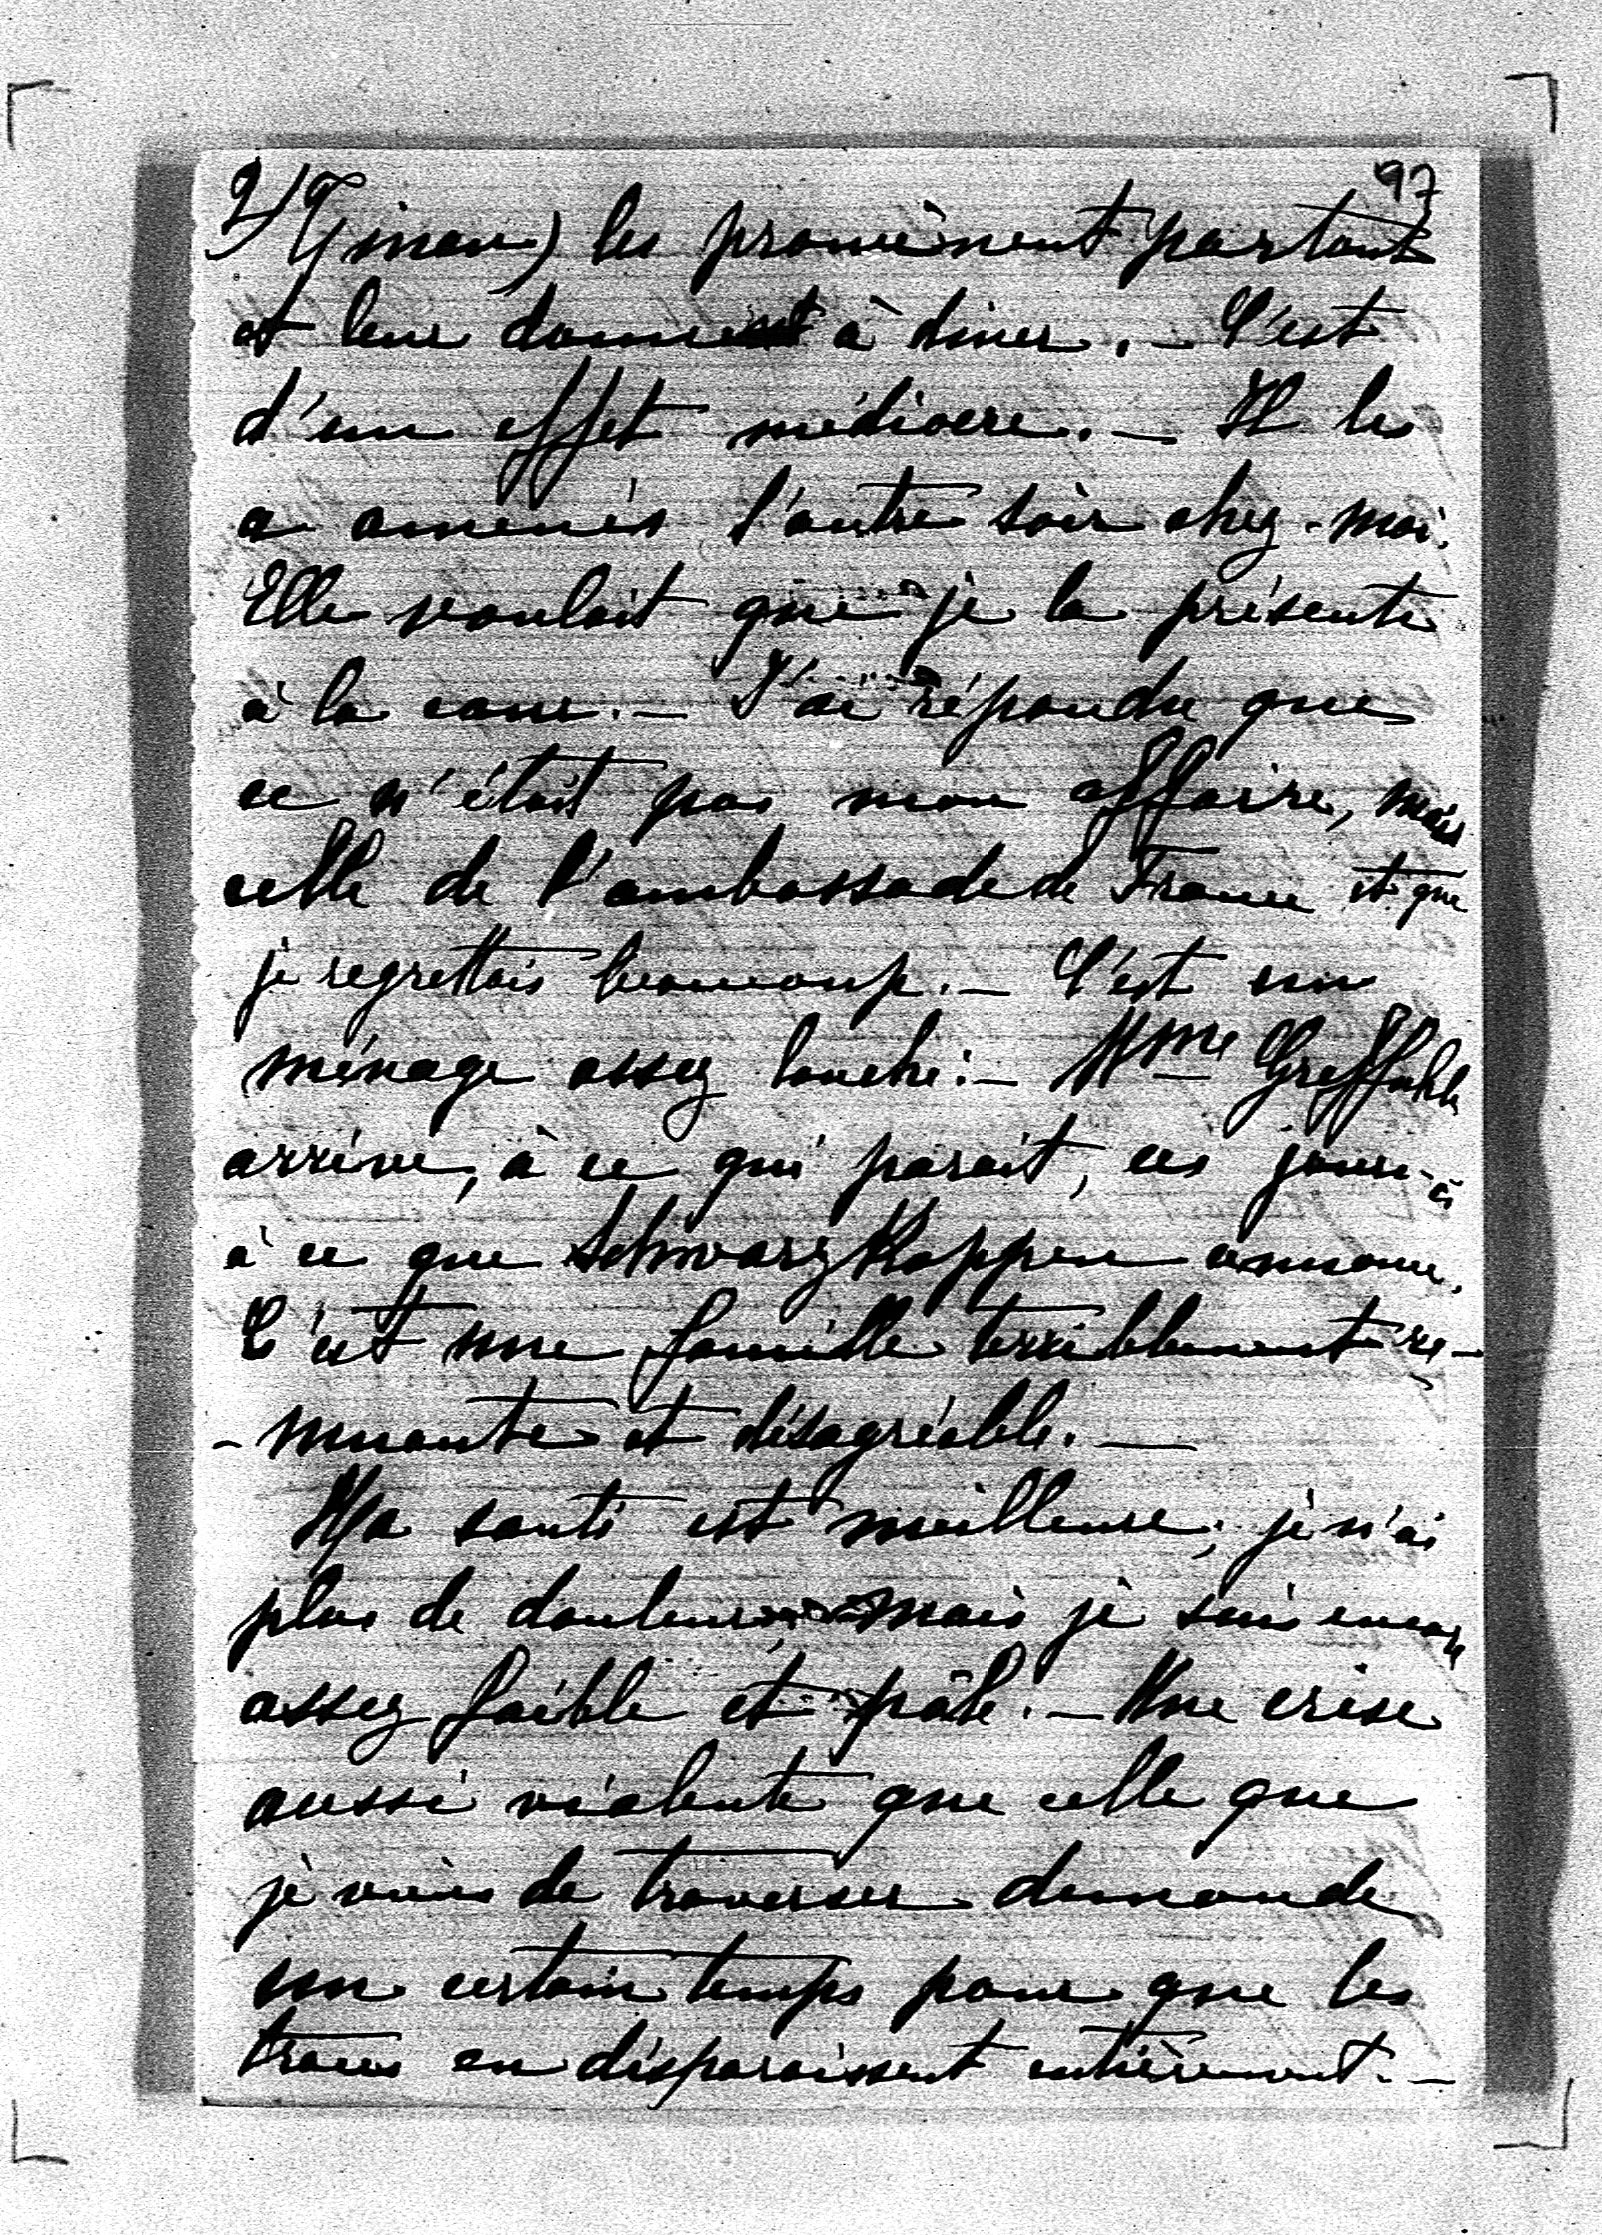 97
2/ Giman) les promènent partout
et leur donnent à diner. — C'est
d'un effet médiocre. — Il les
a amenés l'autre soir chez-moi.
Elle voulait que je la présente
à la cour. — J'ai répondu que
ce n'était pas mon affaire, mais
celle de l'ambassade de France et que
je regrettais beaucoup. — C'est un
ménage assez louche. — Mme Greffuhle
arrive, à ce qui parait, ces jours-ci
à ce que Schwarzkoppen annonce.
C'est une famille terriblement re-
-muante et désagréable. —
Ma santé est meilleure, je n'ai
plus de douleurs, mais je suis encore
assez faible et pâle. — Une crise
aussi violente que celle que
je viens de traverser demande
un certain temps pour que les
traces en disparaissent entièrement. —